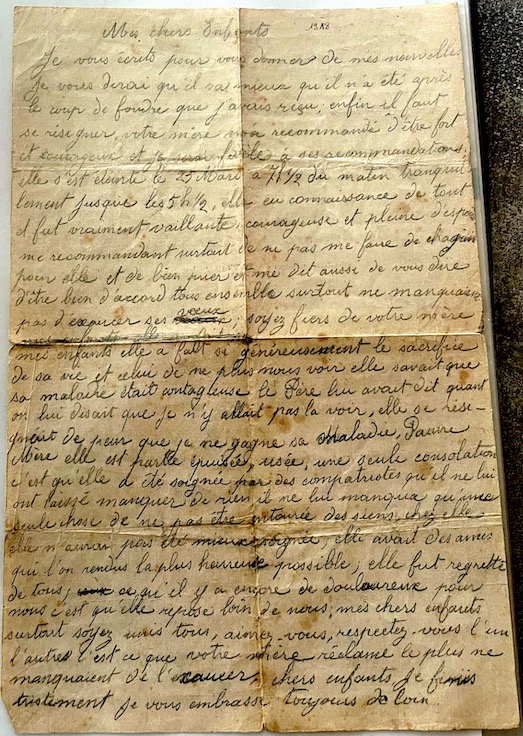 1918
Mes chers Enfants
Je vous écrits pour vous donner de mes nouvelles
Je vous dirai qu'il va mieux qu'il n'a été après
le coup de foudre que j'avais reçu, enfin il faut
se résigner, votre mère m'a recommandé d'être fort
et courageux et je serai fidèle à ses recommandations,
elle s'est éteinte le 25 Mars à 7h 1/2 du matin tranquil
lement jusque les 5h 1/2, elle eu connaissance de tout
et fut vraiment vaillante, courageuse et pleine d'espoir
me recommandant surtout de ne pas me faire de chagrin
pour elle et de bien prier et me dit aussi de vous dire
d'être bien d'accord tous ensemble surtout ne manquaient
pas d'exaucer ses voeux, soyez fiers de votre mère
mes enfants elle a fait si généreusement le sacrifice
de sa vie et celui de ne plus nous voir elle savait que
sa maladie était contagieuse le Père lui avait dit quant
on lui disait que je n'y allait pas la voir, elle se rési-
gnait de peur que je ne gagne sa maladie, Pauvre
Mère elle est partie épuisée, usée, une seule consolation
c'est qu'elle a été soignée par des compatriotes qu'il ne lui
ont laissé manquer de rien il ne lui manqua qu'une
seule chose de ne pas être entourée des siens, chez elle
elle n'aurai pas été mieux soignée, elle avait des amies
qui l'on rendus la plus heureuse possible, elle fut regrettée
de tous, ce qu'il y a encore de douloureux pour
nous c'est qu'elle repose loin de nous, mes chers enfants
surtout soyez unis tous, aimez-vous, respectez-vous l'un
l'autres c'est ce que votre mère réclame le plus ne
manquaient de l'exaucer, chers enfants je finis
tristement je vous embrasse toujours de loin.